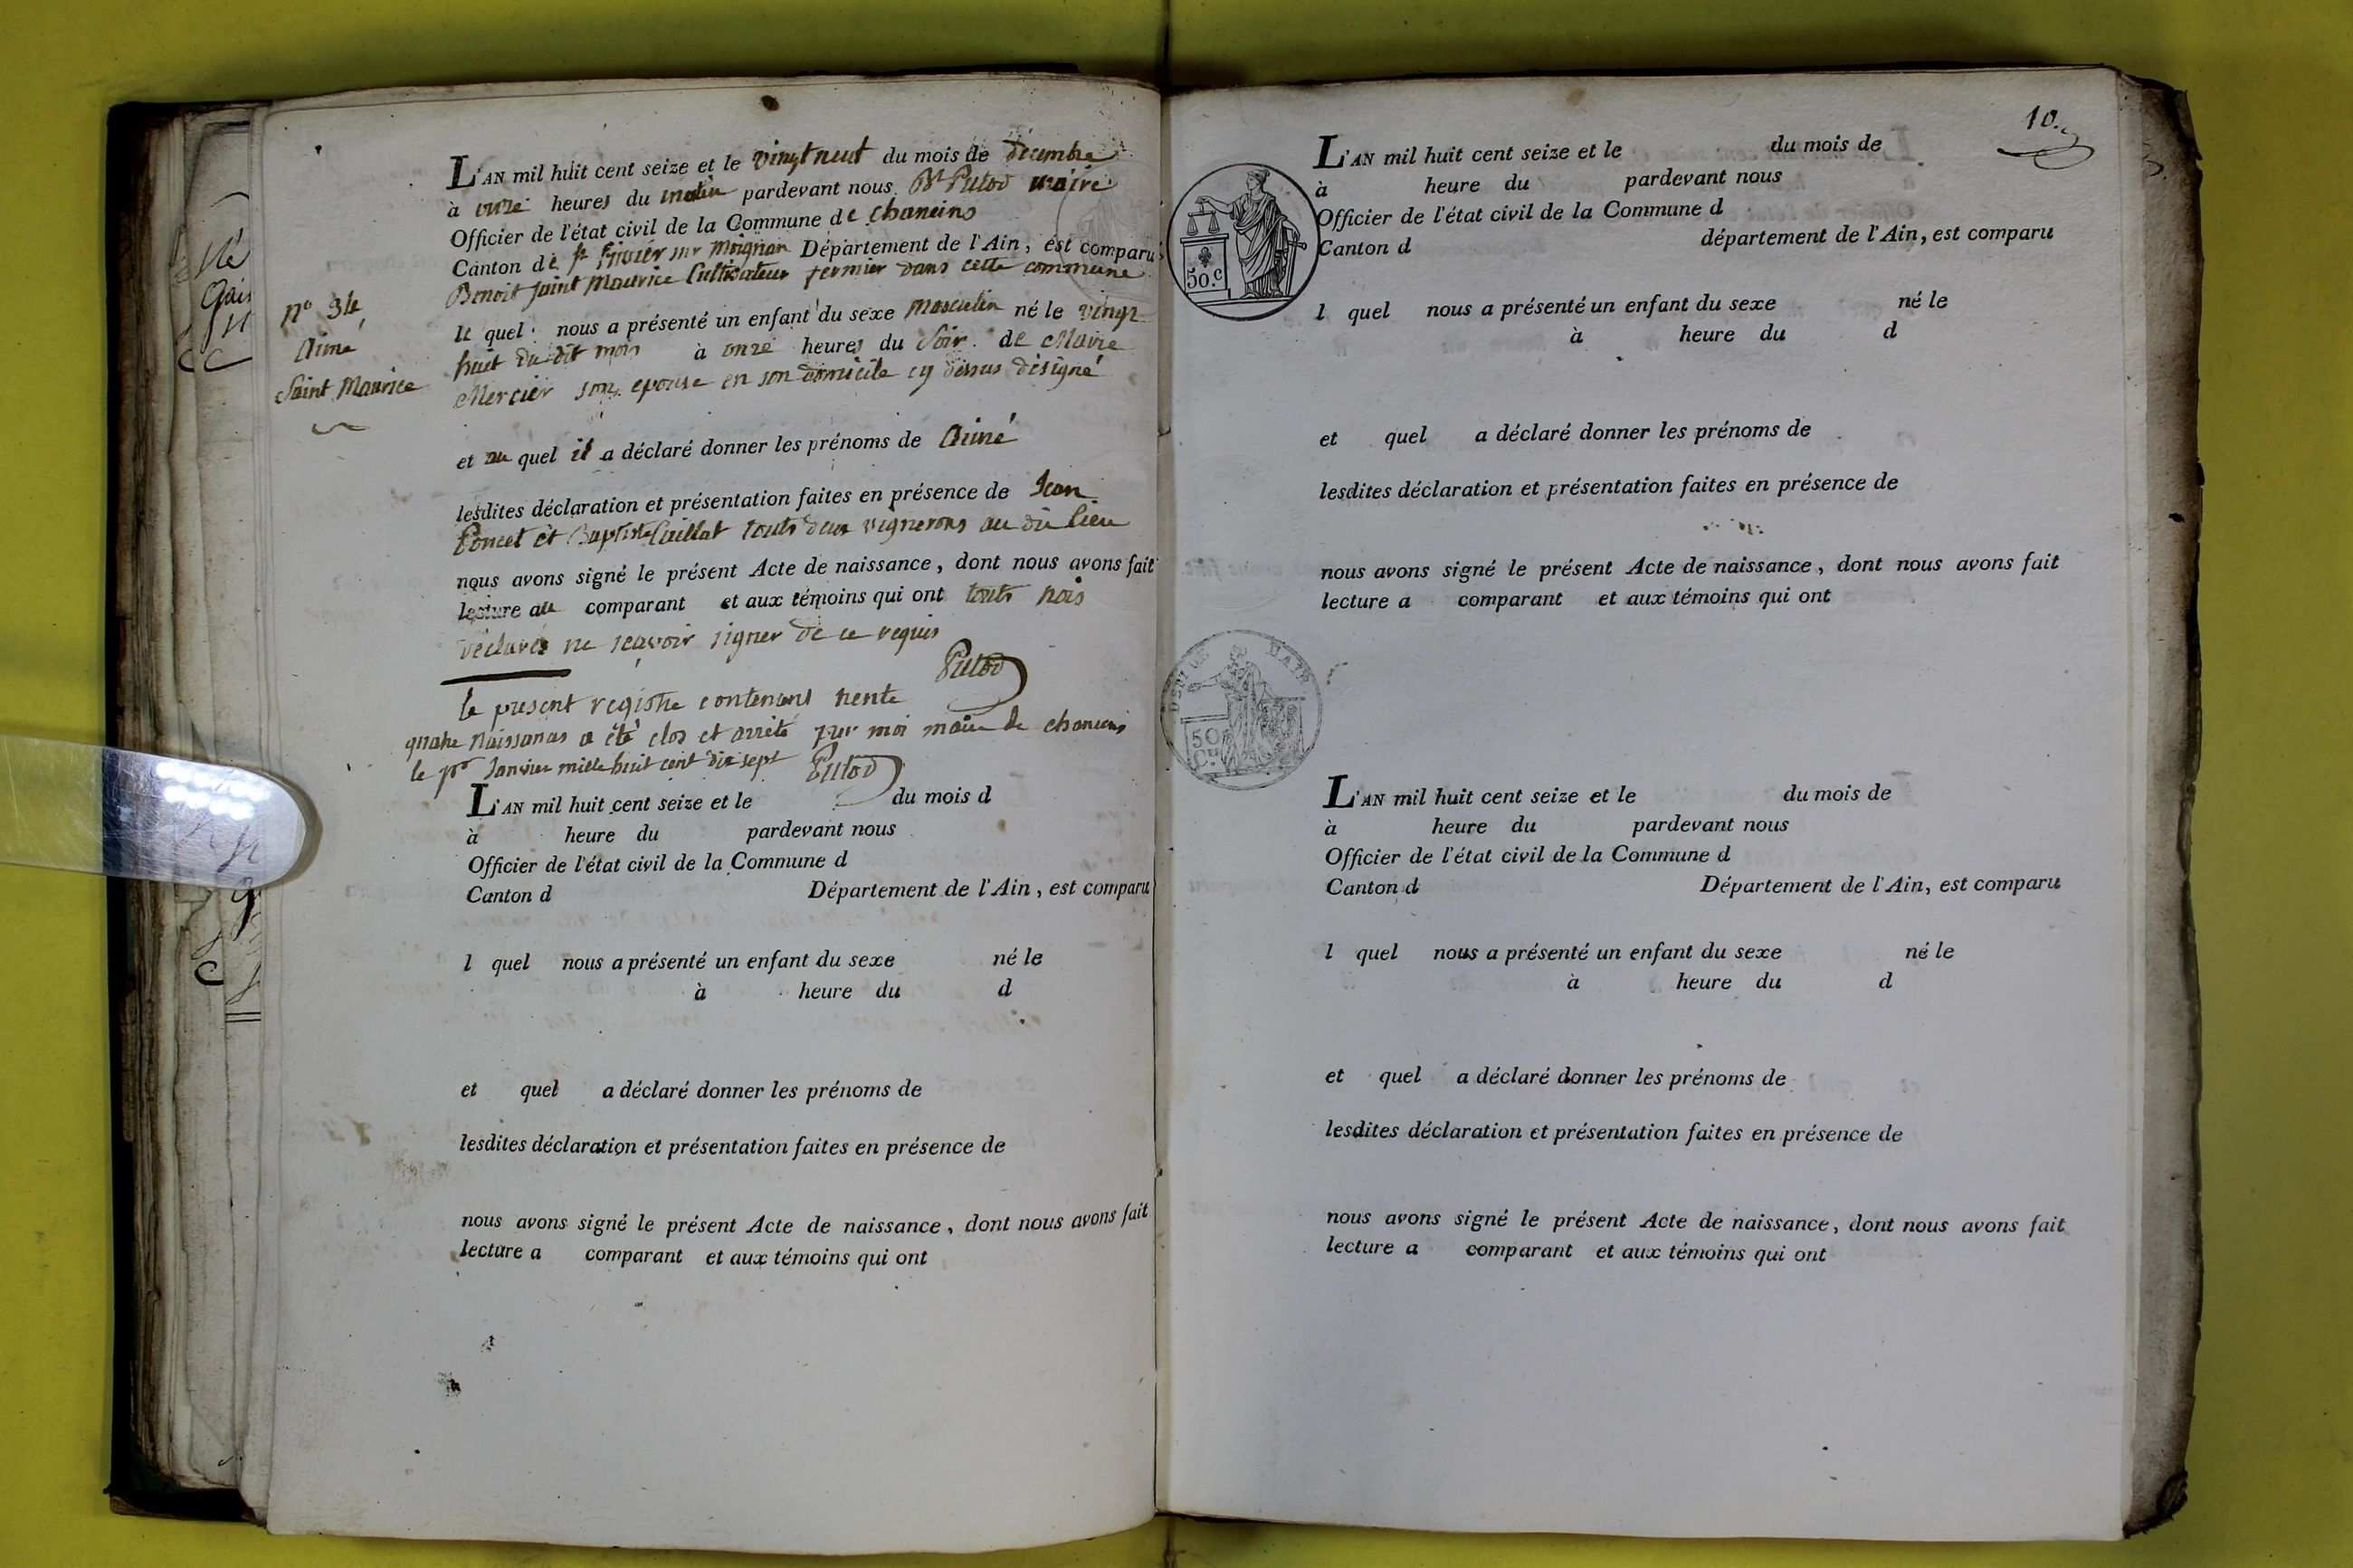 L'AN mil huit cent seize et le vingt neuf du mois de décembre
à onze heures du matin pardevant nous Bt Putod maire
Officier de l'état civil de la Commune de chaneins
Canton de st trivier sur Moignan Département de l'Ain, est comparu
Benoit Saint Maurice Cultivateur fermier dans cette commune
le quel nous a présenté un enfant du sexe masculin né le vingt
huit du dit mois à onze heures du Soir de Marie
Mercier son epouse en son domicile cy dessus désigné
n° 34
Aimé
Saint Maurice
et au quel il a déclaré donner les prénoms de Aimé
lesdites déclaration et présentation faites en présence de Jean
Poncet et Baptiste Caillat touts deux vignerons au dit lieu
nous avons signé le présent Acte de naissance, dont nous avons fait
lecture au comparant et aux témoins qui ont touts trois
déclarés ne scavoir signer de ce requis
Putod
le present registre contenant trente
quatre Naissances a été clos et arrêté par moi maire de chaneins
le pr Janvier mille huit cent dix sept Putod
L'AN mil huit cent seize et le du mois d
à heure du pardevant nous
Officier de l'état civil de la Commune d
Canton d Département de l'Ain, est comparu
l quel nous a présenté un enfant du sexe né le
à heure du d
et quel a déclaré donner les prénoms de
lesdites déclaration et présentation faites en présence de
nous avons signé le présent Acte de naissance, dont nous avons fait
lecture a comparant et aux témoins qui ont
10.
L'AN mil huit cent seize et le du mois de
à heure du pardevant nous
Officier de l'état civil de la Commune d
Canton d département de l'Ain, est comparu
50.c
l quel nous a présenté un enfant du sexe né le
à heure du d
et quel a déclaré donner les prénoms de
lesdites déclaration et présentation faites en présence de
nous avons signé le présent Acte de naissance, dont nous avons fait
lecture a comparant et aux témoins qui ont
50
L'AN mil huit cent seize et le du mois de
à heure du pardevant nous
Officier de l'état civil de la Commune d
Canton d Département de l'Ain, est comparu
l quel nous a présenté un enfant du sexe né le
à heure du d
et quel a déclaré donner les prénoms de
lesdites déclaration et présentation faites en présence de
nous avons signé le présent Acte de naissance, dont nous avons fait
lecture a comparant et aux témoins qui ont